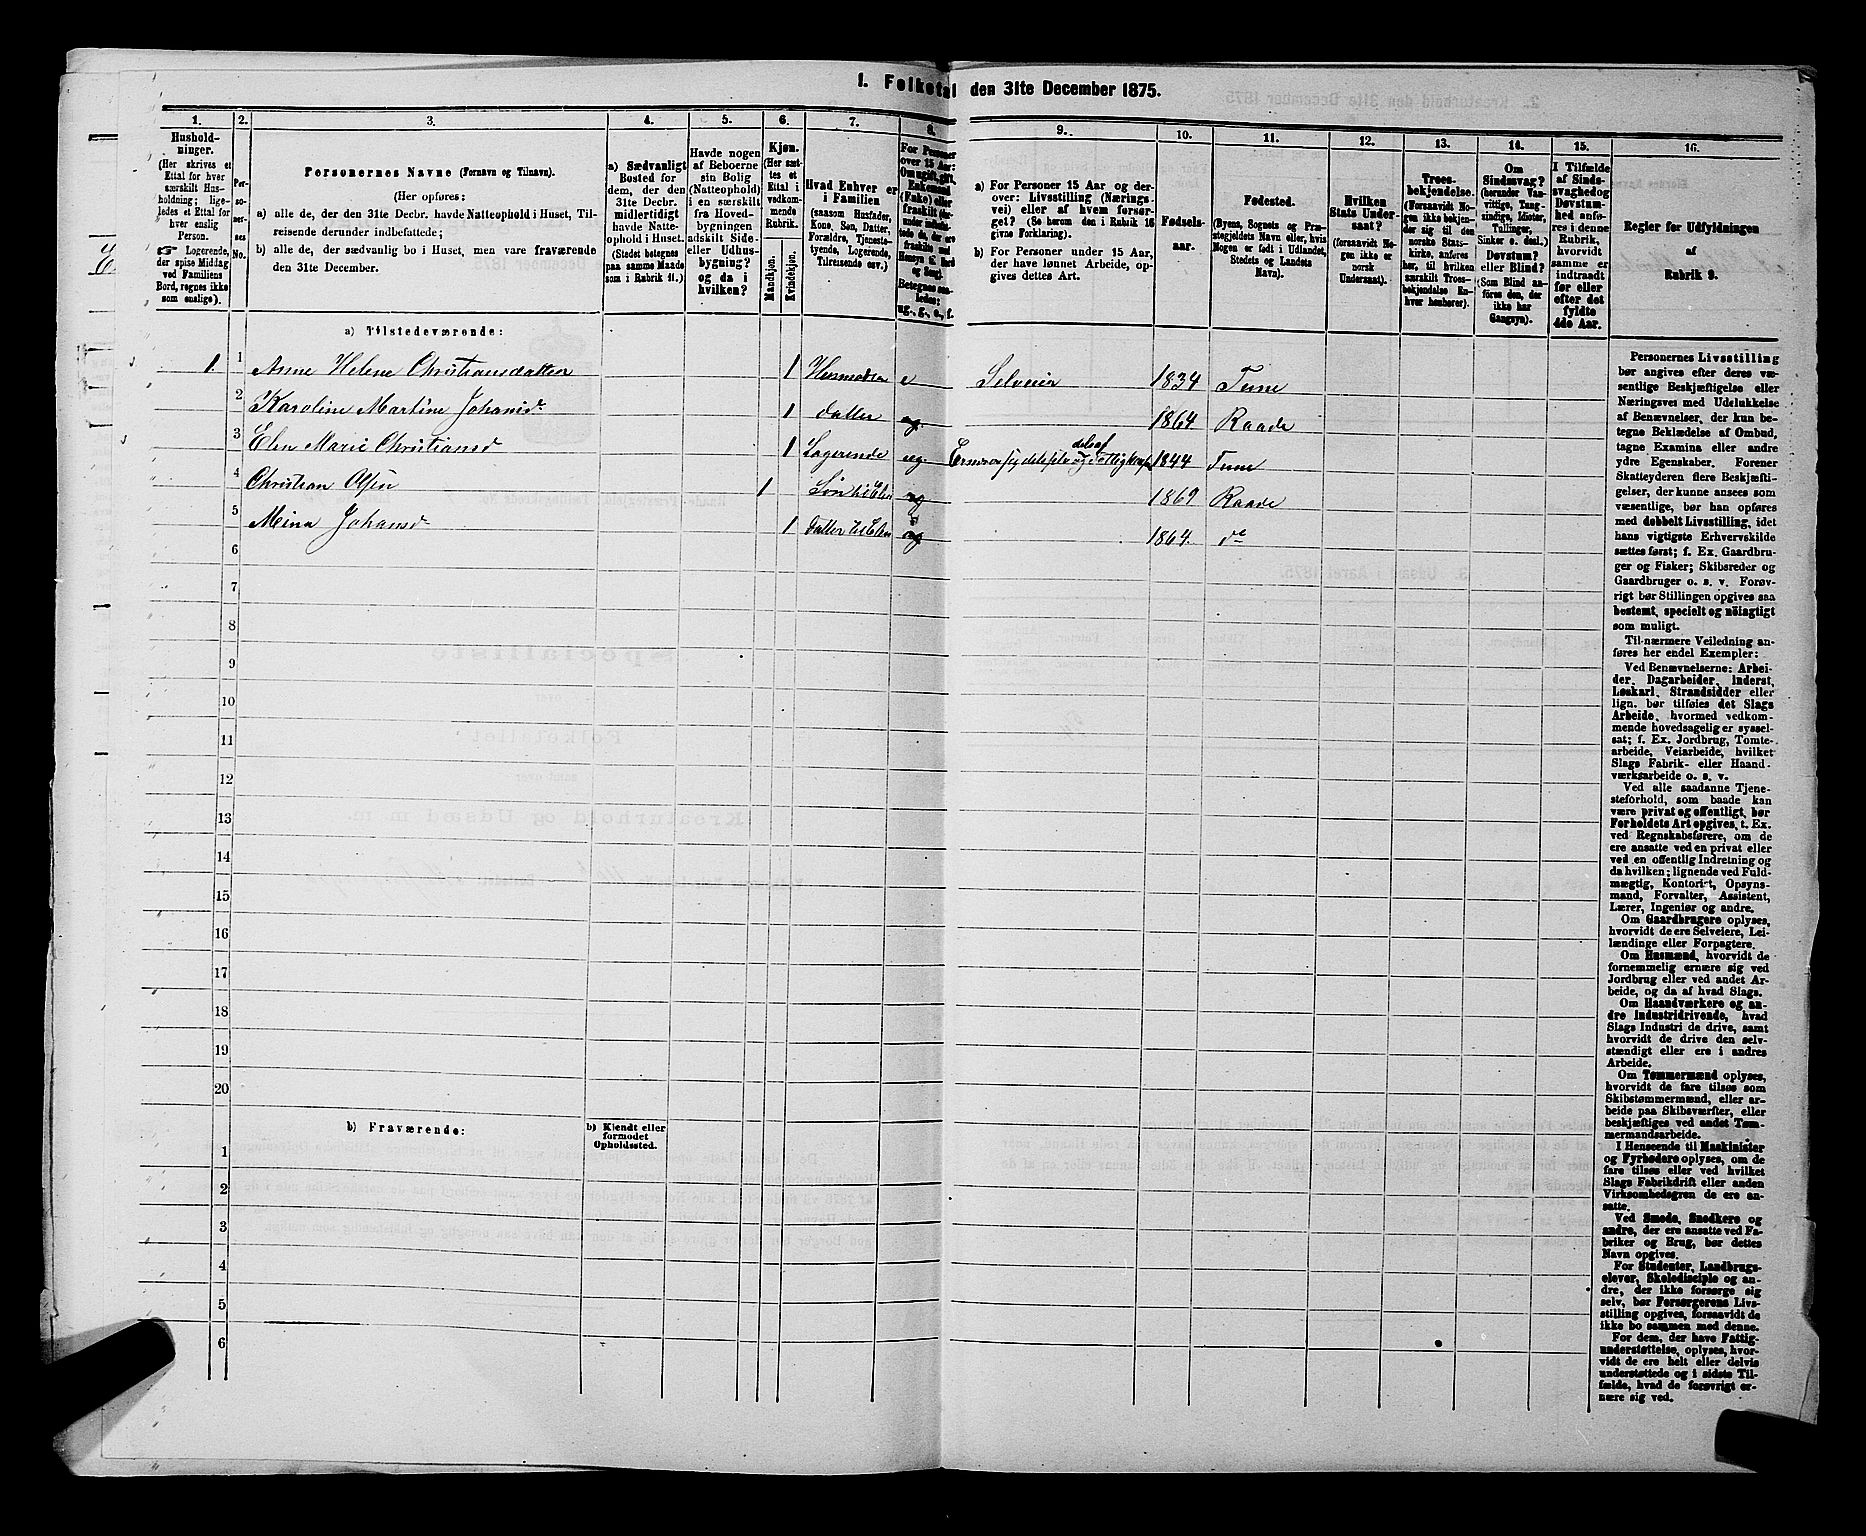 1. Folketal den 31te December 1875.
1. 2. 3. 4. 5. 6. 7. 8. 9. 10. 11. 12. 13. 14. 15. 16.
Hushold-
ninger.
(Her skrives et
Ettal for hver
særskilt Hus-
holdning; lige-
ledes et Ettal for
hver enslig
Person.
☞ Logerende,
der spise Middag
ved Familiens
Bord, regnes ikke
som enslige).
Per-
so-
ner-
nes
No.
Personernes Navne (Fornavn og Tilnavn).
(Her opføres:
a) alle de, der den 31te Decbr. havde Natteophold i Huset, Til-
reisende derunder indbefattede;
b) alle de, der sædvanlig bo i Huset, men vare fraværende
den 31te December.
a) Sædvanligt
Bosted for
dem, der den
31te Decbr.
midlertidigt
havde Natte-
ophold i Huset.
(Stedet betegnes
paa samme Maade
som i Rubrik 11.)
Havde nogen
af Beboerne
sin Bolig
(Natteophold)
i en særskilt
fra Hoved-
bygningen
adskilt Side-
eller Udhus-
bygning?
og da i
hvilken?
Kjøn.
(Her sæt-
tes et
Ettal i
vedkom-
mende
Rubrik.
Mandkjøn.
Kvindekjøn.
Hvad Enhver er
i Familien
(saasom Husfader,
Kone, Søn, Datter,
Forældre, Tjeneste-
tyende, Logerende,
Tilreisende osv.)
For Personer
over 15 Aar:
Om ugift, gift,
Enkemand
(Enke) eller
fraskilt
Betegnes saa-
ledes:
ug., g., e., f.
a) For Personer 15 Aar og der-
over: Livsstilling (Nærings-
vei) eller af hvem forsør-
get? (Se herom den i Rubrik 16
givne Forklaring).
b) For Personer under 15 Aar,
der have lønnet Arbeide, op-
gives dettes Art.
Fødsels-
aar.
Fødested.
(Byens, Sognets og Præ-
stegjeldets Navn eller, hvis
Nogen er født i Udlandet,
Stedets og Landets
Navn).
Hvilken
Stats Under-
saat?
(forsaavidt No-
gen ikke er
norsk
Undersaat).
Troes-
bekjendelse.
(Forsaavidt No-
gen ikke bekjen-
der sig til den
norske Stats-
kirke, anføres
her, til hvilken
særskilt Troes-
bekjendelse En-
hver henhører).
Om
Sindssvag?
(herunder Van-
vittige, Tung-
sindige, Idioter,
Tullinger,
Sinker o. desl.)
Døvstum?
eller Blind?
(Som Blind an-
føres den, der
ikke har
Gangsyn).
I Tilfælde
af Sinds-
svaghed og
Døvstum-
hed anfø-
res i denne
Rubrik,
hvorvidt
samme er
indtraadt
før eller
efter det
fyldte
4de Aar.
Regler for Udfyldningen
af
Rubrik 9.
a) Tilstedeværende:
1 1 Anne Helene Christiansdatter 1 Husmoder e Selveier 1834 Tune
2 Karoline Martine Johansd. 1 datter ug 1864 Raade
3 Elen Marie Christiansd 1 Logerende ug. 1844 Tune
4 Christian Olsen 1 Søn til Elen ug 1869 Raade
5 Mina Johansd 1 datter til Elen ug 1864. do
6
7
8
9
10
11
12
13
14
15
16
17
18
19
20
b) Fraværende: b) Kjendt eller
formodet
Opholdssted.
1
2
3
4
5
6
Personernes Livsstilling
bør angives efter deres væ-
sentlige Beskjæftigelse eller
Næringsvei med Udelukkelse
af Benævnelser, der kun be-
tegne Beklædelse af Ombud,
tagne Examina eller andre
ydre Egenskaber. Forener
Skatteyderen flere Beskjæfti-
gelser, der kunne ansees som
væsentlige, bør han opføres
med dobbelt Livsstilling, idet
hans vigtigste Erhvervskilde
sættes først; f. Ex. Gaardbru-
ger og Fisker; Skibsreder og
Gaardbruger o. s. v. Forøv-
rigt bør Stillingen opgives saa
bestemt, specielt og nöiagtigt
som muligt.
Til nærmere Veiledning an-
føres her endel Exempler:
Ved Benævnelserne: Arbei-
der, Dagarbeider, Inderst,
Løskarl, Strandsidder eller
lign. bør tilføies det Slags
Arbeide, hvormed vedkom-
mende hovedsagelig er syssel-
sat; f. Ex. Jordbrug, Tomte-
arbeide, Veiarbeide, hvilket
Slags Fabrik- eller Haand-
værksarbeide o. s. v.
Ved alle saadanne Tjene-
steforhold, som baade kan
være privat og offentligt, bør
Forholdets Art opgives, t. Ex.
ved Regnskabsførere, om de
ere ansatte ved en privat eller
ved en offentlig Indretning og
da hvilken; lignende ved Fuld-
mægtig, Kontorist, Opsyns-
mand, Forvalter, Assistent,
Lærer, Ingeniør og andre.
Om Gaardbrugere oplyses,
hvorvidt de ere Selveiere, Lei-
lændinge eller Forpagtere.
Om Husmænd, hvorvidt de
fornemmelig ernære sig ved
Jordbrug eller ved andet Ar-
beide, og da af hvad Slags.
Om Haandværkere og an-
dre Industridrivende, hvad
Slags Industri de drive, samt
hvorvidt de drive den selv-
stændigt eller ere i andres
Arbeide.
Om Tømmermænd oplyses,
hvorvidt de fare tilsøs som
Skibstømmermænd, eller ar-
beide paa Skibsværfter, eller
beskjæftiges ved andet Tøm-
mermandsarbeide.
I Henseende til Maskinister
og Fyrbødere oplyses, om de
fare tilsøs eller ved hvilket
Slags Fabrikdrift eller anden
Virksomhedsgren de ere an-
satte.
Ved Smede, Snedkere og
andre, der ere ansatte ved Fa-
briker og Brug, bør dettes
Navn opgives.
For Studenter, Landbrugs-
elever, Skoledisciple og an-
dre, der ikke forsørge sig
selv, bør Forsørgerens Livs-
stilling opgives, forsaavidt de
ikke bo sammen med denne.
For dem, der have Fattig-
understøttelse, oplyses, hvor-
vidt de ere helt eller delvis
understøttede og i sidste Til-
fælde, hvad de forøvrigt er-
nære sig ved.